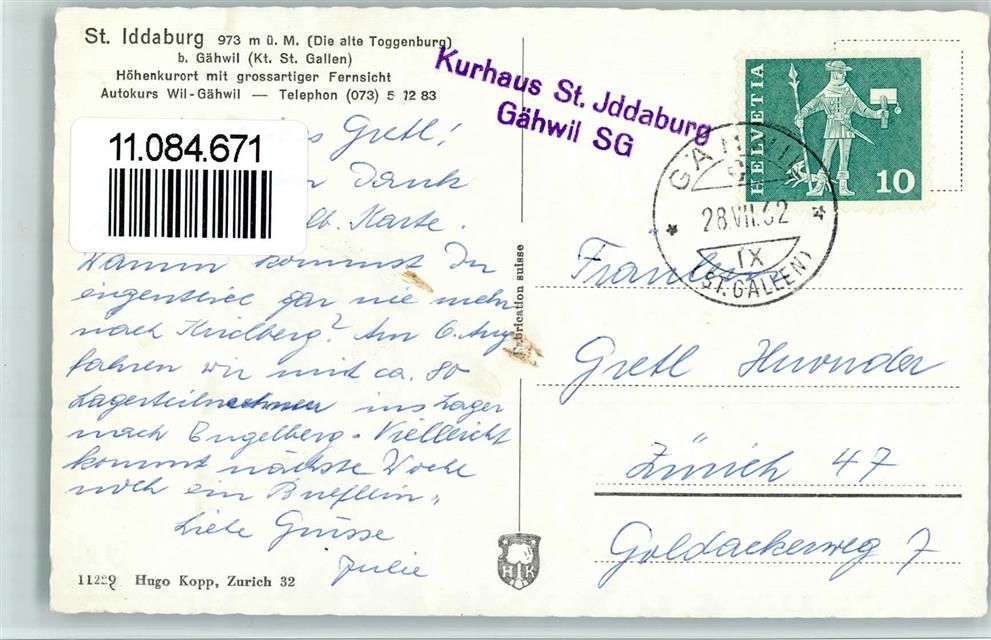 St. Iddaburg 973 m ü. M. (Die alte Toggenburg)
b. Gähwil (Kt. St. Gallen)
Höhenkurort mit grossartiger Fernsicht
Autokurs Wil-Gähwil — Telephon (073) 5 12 83
Kurhaus St. Jddaburg
Gähwil SG
HELVETIA
10
GÄHWIL
28.VII.62
IX
(ST. GALLEN)
11.084.671
Gretl!
Dank
lb. Karte.
Warum kommst Du
eigentlich gar nie mehr
nach Kirchberg? Am 6. Aug.
fahren wir mit ca. 80
Lagerteilnehmer ins Lager
nach Engelberg. Vielleicht
kommt nächste Woche
noch ein Brieflein.
Liebe Grüsse
Julie
Fabrication suisse
Fräulein
Gretl
Zürich 47
Goldackerweg 7
HK
Hugo Kopp, Zurich 32